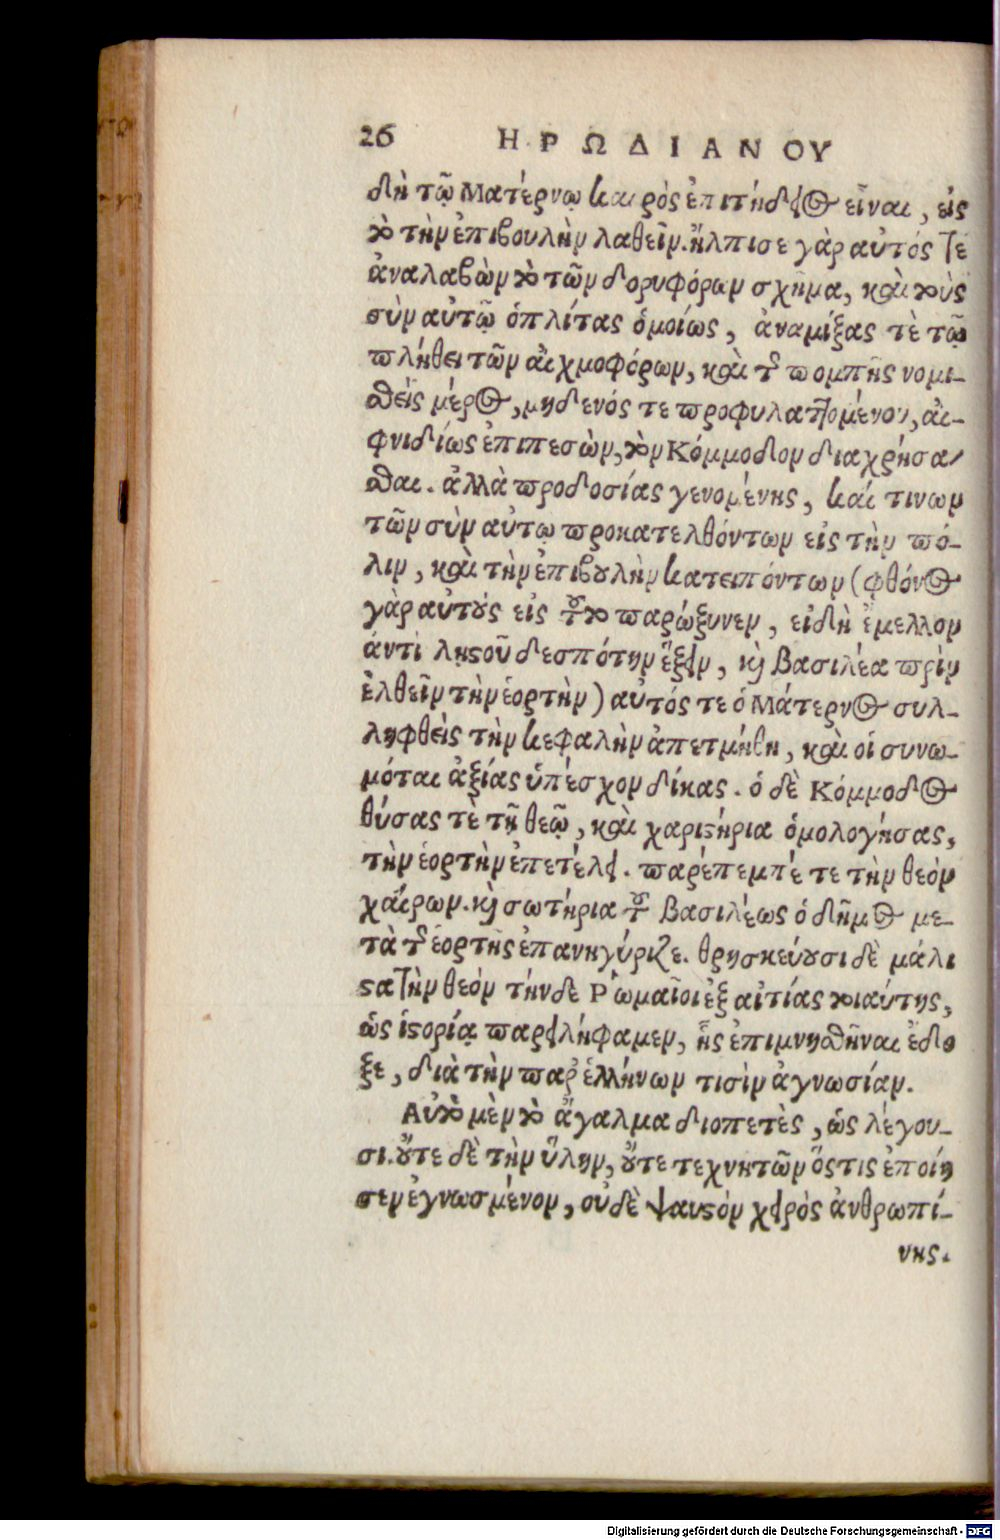 26 ΗΡΩΔΙΑΝΟΥ
δὴ τῷ Ματέρνῳ καιρὸς ἐπιτήδειος εἶναι, εἰς
τὸ τὴν ἐπιβουλὴν λαθεῖν. ἤλπισε γὰρ αὐτός τε
ἀναλαβὼν τὸ τῶν δορυφόρων σχῆμα, καὶ τοὺς
σὺν αὐτῷ ὁπλίτας ὁμοίως, ἀναμίξας τὲ τῷ
πλήθει τῶν αἰχμοφόρων, καὶ τῆς πομπῆς νομι-
σθεὶς μέρος, μηδενός τε προφυλαττομένου, αἰ-
φνιδίως ἐπιπεσὼν, τὸν Κόμμοδον διαχρήσα-
σθαι. ἀλλὰ προδοσίας γενομένης, καί τινων
τῶν σὺν αὐτῳ προκατελθόντων εἰς τὴν πό-
λιν, καὶ τὴν ἐπιβουλὴν κατειπόντων (φθόνος
γὰρ αὐτοὺς εἰς τοῦτο παρώξυνεν, εἰ δὴ ἔμελλον
ἀντὶ ληστοῦ δεσπότην ἕξειν, καὶ βασιλέα πρὶν
ἐλθεῖν τὴν ἑορτὴν) αὐτός τε ὁ Μάτερνος συλ-
ληφθεὶς τὴν κεφαλὴν ἀπετμήθη, καὶ οἱ συνω-
μόται ἀξίας ὑπέσχον δίκας. ὁ δὲ Κόμμοδος
θύσας τὲ τῇ θεῷ, καὶ χαριστήρια ὁμολογήσας,
τὴν ἑορτὴν ἐπετέλει. παρέπεμπέ τε τὴν θεὸν
χαίρων. καὶ σωτήρια τοῦ βασιλέως ὁ δῆμος με-
τὰ τῆς ἑορτῆς ἐπανηγύριζε. θρησκεύουσι δὲ μάλι
στα τὴν θεὸν τήνδε Ῥωμαῖοι ἐξ αἰτίας τοιαύτης,
ὡς ἱστορίᾳ παρειλήφαμεν, ἧς ἐπιμνησθῆναι ἔδο
ξε, διὰ τὴν παρ' ἑλλήνων τισὶν ἀγνωσίαν.
Αὐτὸ μὲν τὸ ἄγαλμα διοπετὲς, ὡς λέγου-
σι. οὔτε δὲ τὴν ὕλην, οὔτε τεχνιτῶν ὅστις ἐποίη
σεν ἐγνωσμένον, οὐδὲ ψαυστὸν χειρὸς ἀνθρωπί-
νης.
Digitalisierung gefördert durch die Deutsche Forschungsgemeinschaft - DFG